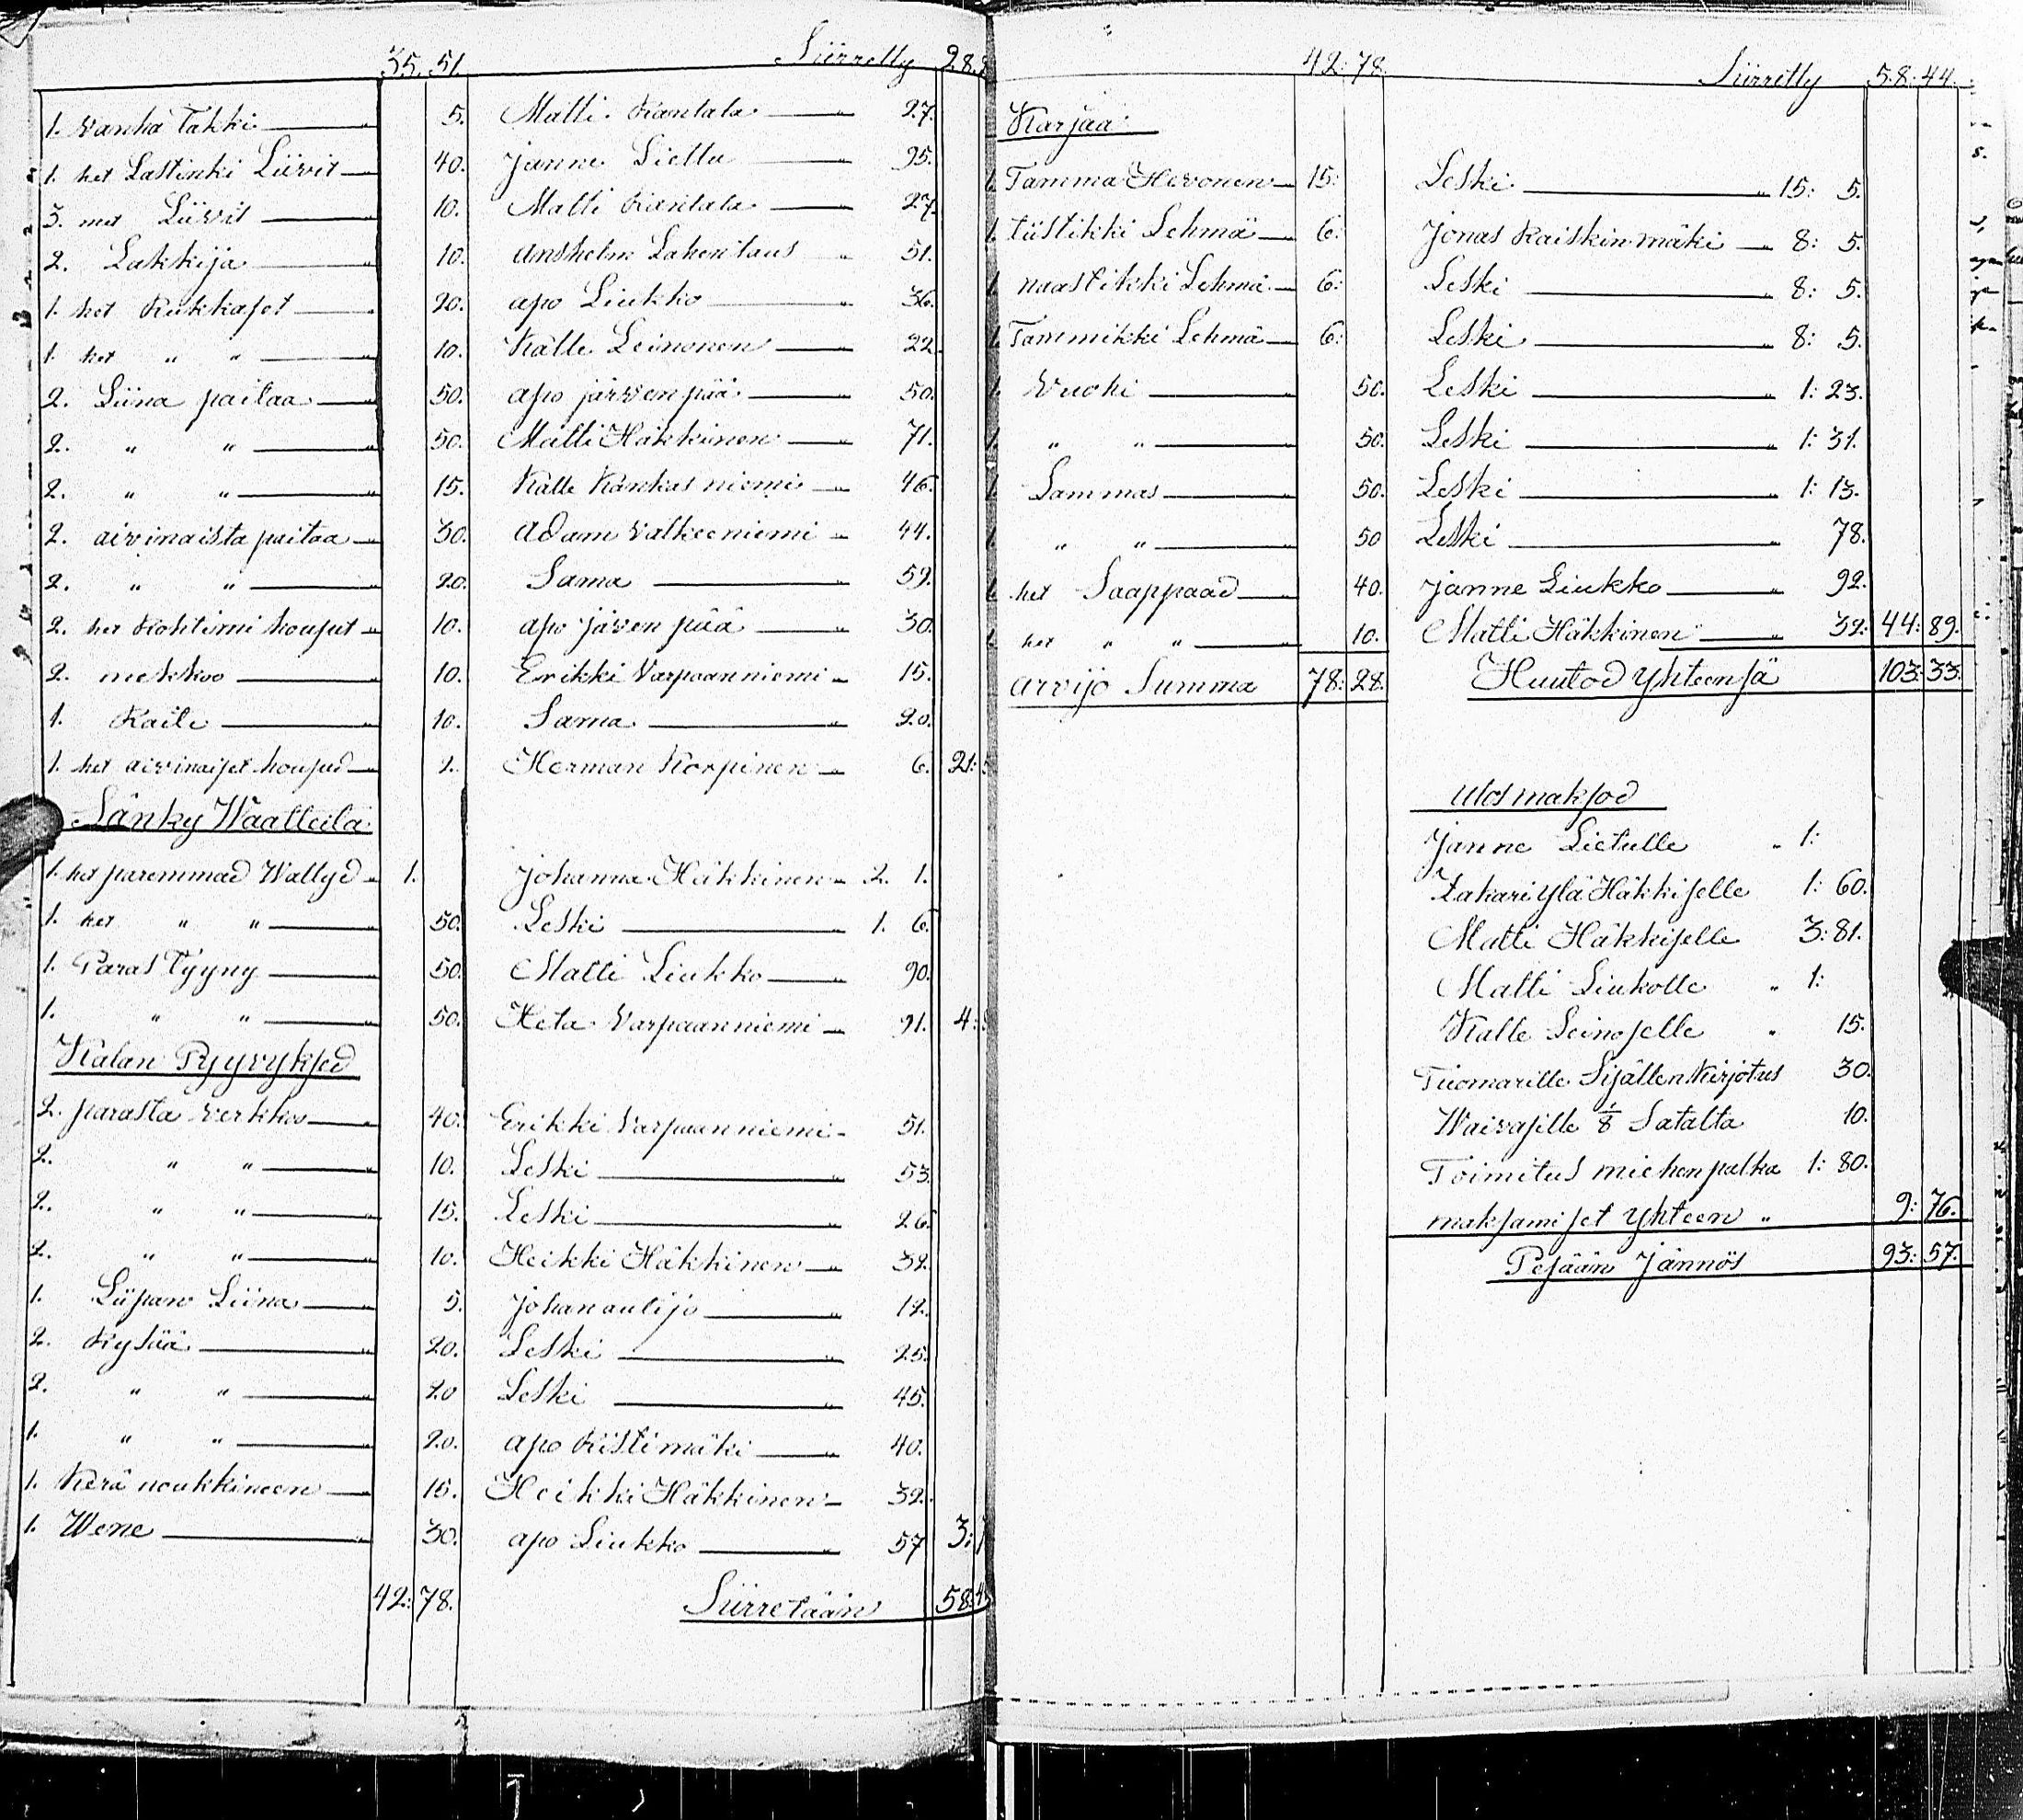 35. 51. Siirretty 28.
1. Vanha Takki — " 5. Matti Rantala — " 27.
1. het Lastinki Liivit — 40. Janne Lietta — " 95.
3. met Liivit — " 10. Matti Rantala — 27.
2. Lakkija — " 10. Anshelm Lahentaus " 51.
1. het Rukkaset — 20. apo Liukko — " 36.
1. het " " — " 10. Kalle Leinonen — 22.
2. Liina paitaa — " 50. apo järvenpää — " 50.
2. " " — " 50. Matti Häkkinen — " 71.
2. " " — " 15. Kalle Kankasniemi — 46.
2. aivinaista paitaa — 30. Adam Valkeeniemi " 44.
2. " " — " 20. Sama — " 59.
2. het Rohtimi housut " 10. apo järvenpää — " 30.
2. mekkoo — " 10. Erikki Varpaanniemi " 15.
1. Raiti — " 10. Sama — " 20.
1. het aivinaiset housud — 2. Herman Korpinen — 6. 21:
Sänky Waatteita
1. het paremmad Waltyd " 1. Johanna Häkkinen " 2. 1.
1. het " " — " 50. Leski — " 1. 6.
1. Paras Tyyny — " 50. Matti Liukko — " 90.
1. " " — " 50. Heta Varpaanniemi — 91. 4:
Kalan Pyyvyksed
2. parasta verkkoo — " 40. Erikki Varpaanniemi - 51.
2. " " — " 10. Leski — " 53.
2. " " — " 15. Leski — " 26.
2. " " — " 10. Heikki Häkkinen — 32.
1. Siipan Liina — " 5. Johan autijo — " 12.
2. Rysää — " 20. Leski — " 25.
2. " " — " 20 Leski — " 45.
1. " " — " 20. apo Ristimäki — " 40.
1. Kerä noukkineen — 15. Heikki Häkkinen — 32.
1. Wene — " 30. apo Liukko — " 57 3:
42: 78. Siirretään 58:4
42: 78. Siirretty 58: 44.
Karjaa
1. Tamma Hevonen — 15: Leski — " 15: 5.
1. Tiistikki Lehmä — 6: Jonas Raiskinmäki — 8: 5.
1. naastikki Lehmä — 6: Leski — " 8: 5.
1. Tammikki Lehmä — 6: Leski — " 8: 5.
1. Vuohi — " 50. Leski — " 1: 23.
1. " " — " 50. Leski — " 1: 31.
1. Lammas — " 50. Leski — " 1: 13.
1. " " — " 50 Leski — " 78.
1. het Saappaad — " 40. Janne Liukko — " 92.
1. het " " — " 10. Matti Häkkinen — " 32: 44: 89.
arvijo Summa 78: 28. Huutod Yhteensä 103: 33.
Ulosmaksod
Janne Lietulle " 1:
Zakari Ylä Häkkiselle 1: 60.
Matti Häkkiselle 3: 81.
Matti Liukolle " 1:
Kalle Leinoselle " 15.
Tuomarille Sisällenkirjotus 30.
Waivasille 1/8 Satalta 10.
Toimitus miehen palka 1: 80.
maksamiset Yhteen " 9: 76.
Pesään Jännös 93: 57.